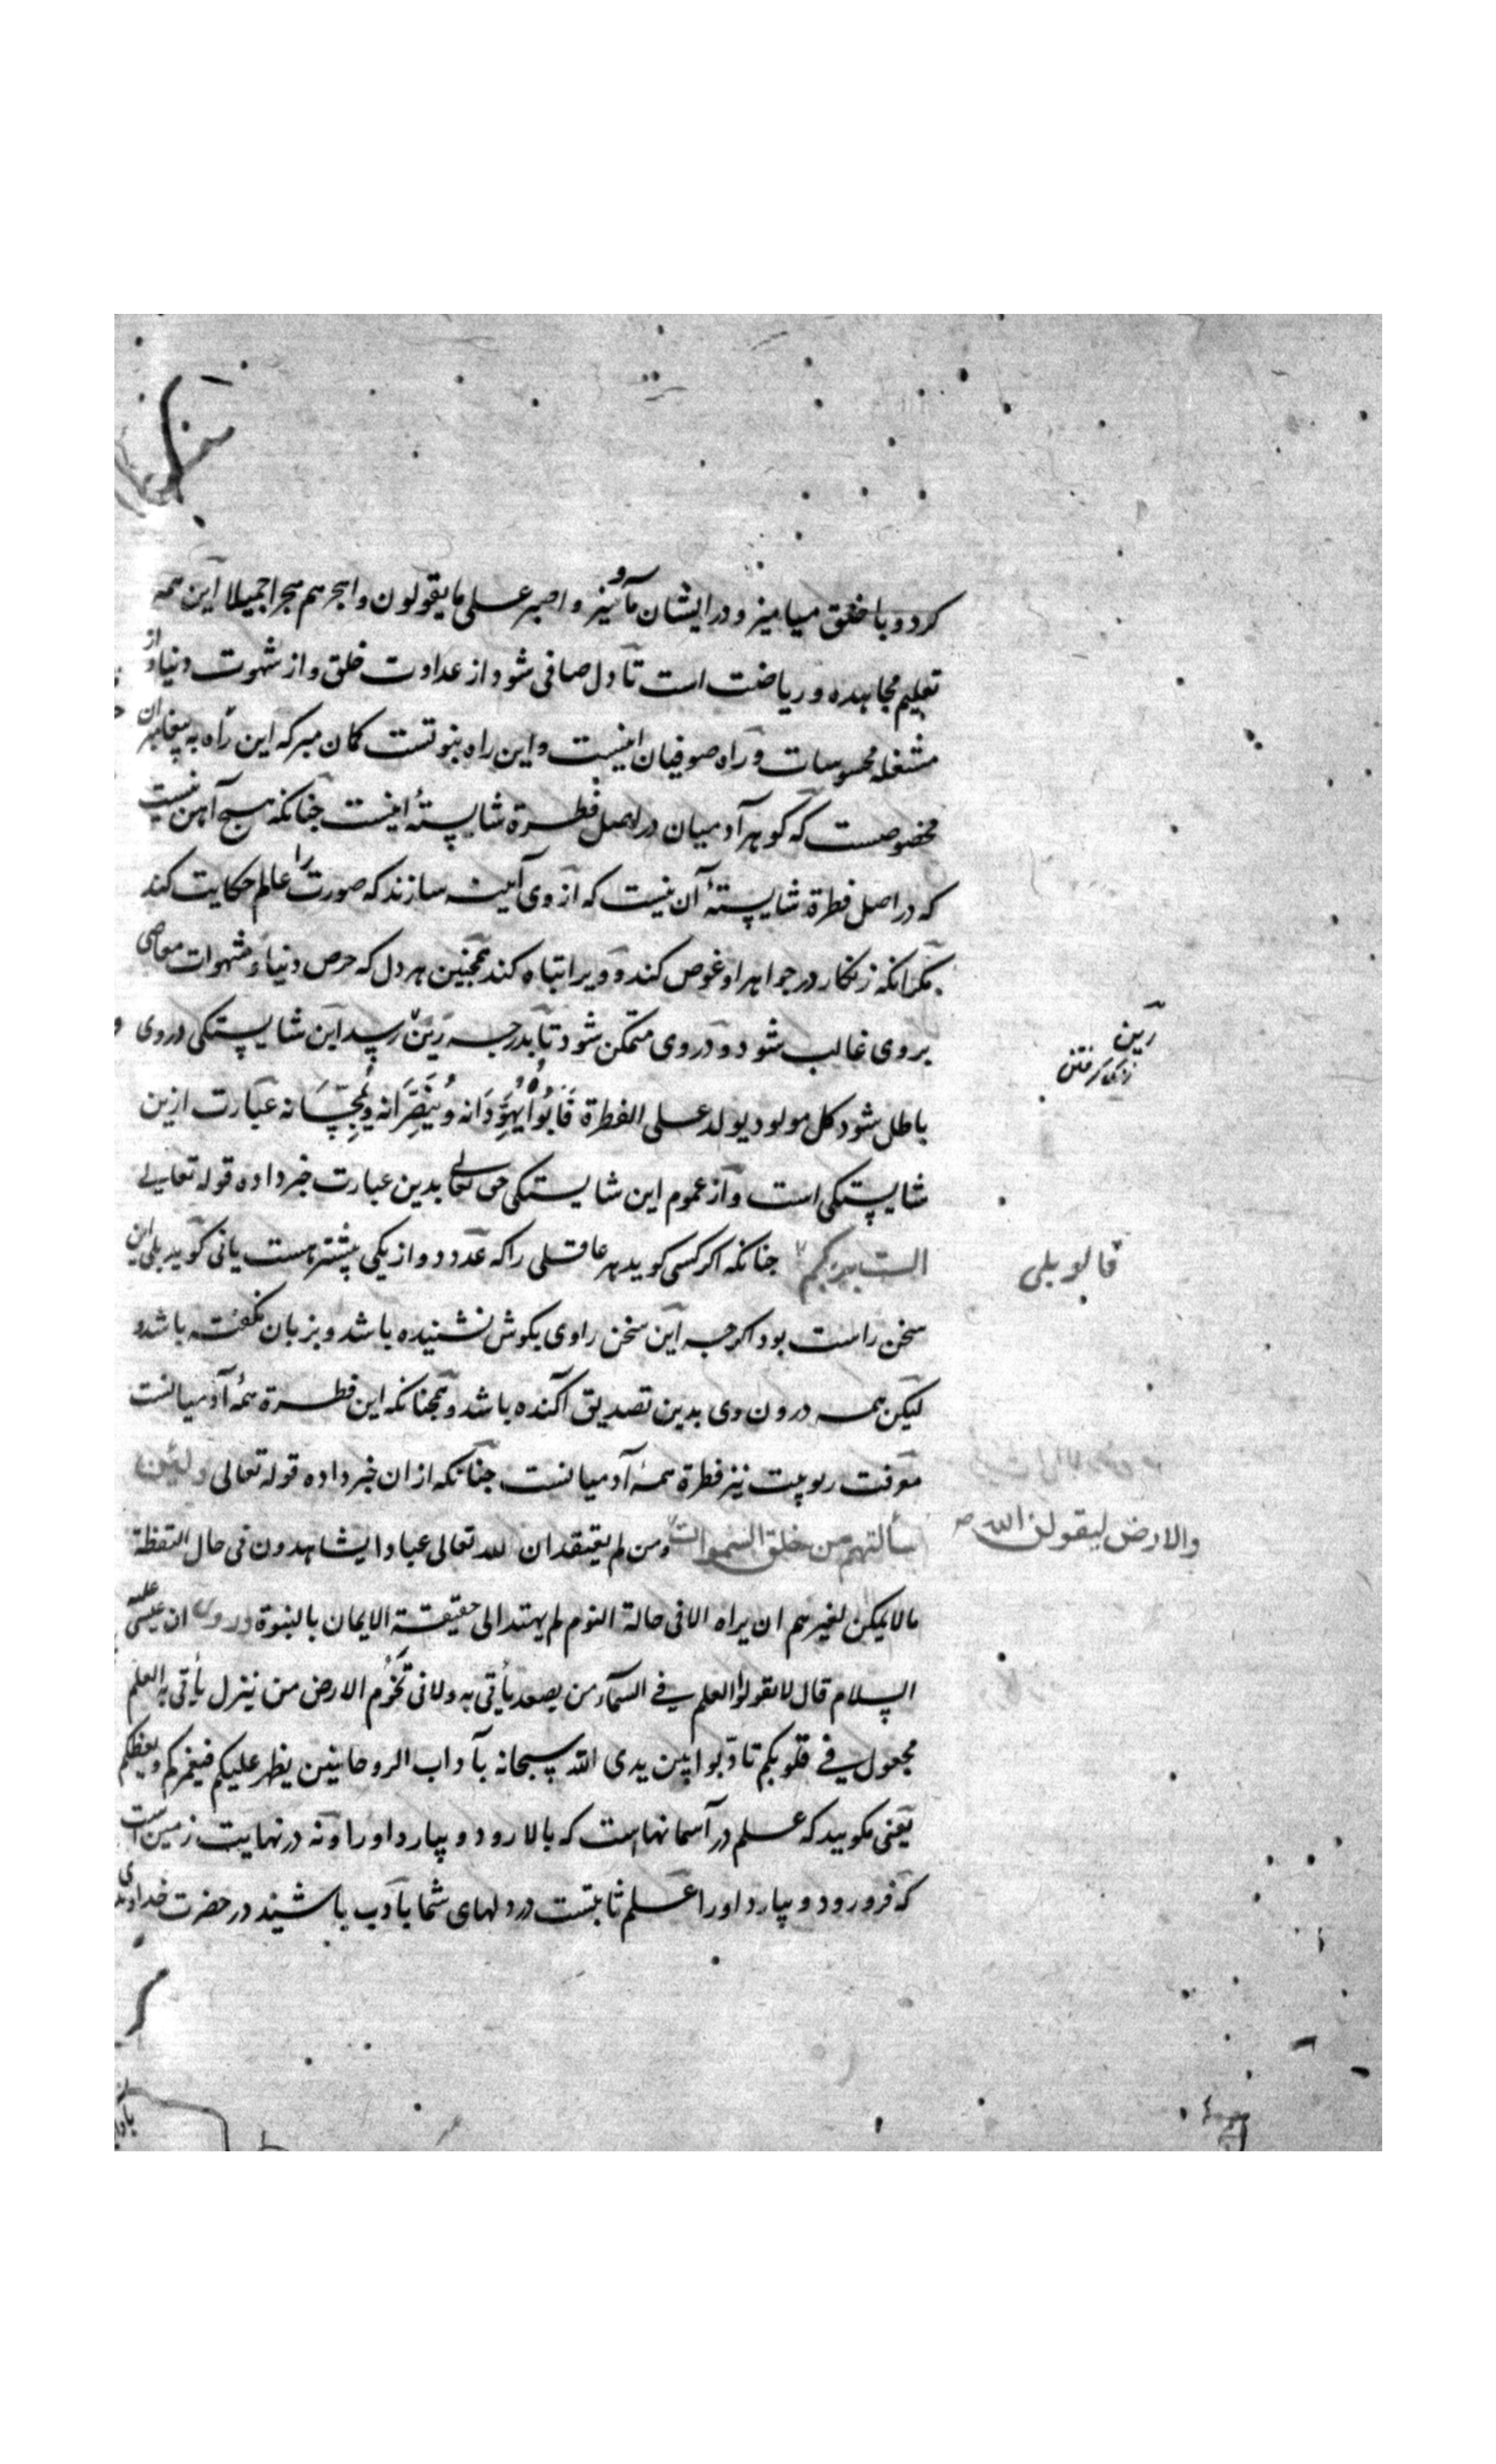 کرد و با خلق میامیز و در ایشان ماویز و اصبر علی ما یقولون و اهجرهم هجرا جمیلا این همه
تعلیم مجاهده و ریاضت است تا دل صافی شود از عداوت خلق و از شهوت دنیا و از
مشغله محسوسات و راه صوفیان اینست و این راه نبوتست کمان مبر که این راه به پیغامبران
مخصوصست که کوهر آدمیان در اصل فطرة شایستهٔ اینست جنانکه هیج آهن نیست
که در اصل فطرة شایستهٔ آن نیست که از وی آینه سازند که صورت عالم را حکایت کند
مکر انکه زنکار در جواهر او غوص کند و ویرا تباه کند همجنین هر دل که حرص دنیا و شهوات معاصی
بر وی غالب شود و در وی متمکن شود تا بدرجه رین رسد این شایستکی در وی
رین
باطل شود کل مولود یولد علی الفطرة فَابُواهُ یُهَوِّدَانه و یُنَصِّرَانه و یُمَجِّسَانه عبارت ازین
شایستکی است و از عموم این شایستکی حق تعالی بدین عبارت خبر داده قوله تعالی
الست بربکم جنانکه اکر کسی کوید هر عاقلی را که عدد دو از یکی بیشتر هست یا نی کوید بلی این
قالو بلی
سخن راست بود اکرجه این سخن را وی بکوش نشنیده باشد و بزبان نکفته باشد و
لیکن همه درون وی بدین تصدیق آکنده باشد و همجنانکه این فطرة همهٔ آدمیانست
معرفت ربوبیت نیز فطرة همهٔ آدمیانست جنانکه از ان خبر داده قوله تعالی ولئن
سألتهم من خلق السموات ومن لم یعتقد ان لله تعالی عبادا یشاهدون فی حال الیقظة
والارض لیقولن الله
مالا یمکن لغیرهم ان یراه الا فی حالة النوم لم یهتد الی حقیقة الایمان بالنبوة و روی ان عیسی علیه
السلام قال لا تقولوا العلم فی السماء من یصعد یأتی به ولا فی تخوم الارض من ینزل یأتی به العلم
مجعول فی قلوبکم تادّبوا بین یدی الله سبحانه بآداب الروحانیین یظهر علیکم
یعنی مکویید که علم در آسمانهاست که بالا رود و بیارد او را و نه در نهایت زمین است
که فرو رود و بیارد او را علم ثابتست در دلهای شما با ادب باشیند در حضرت خداوند